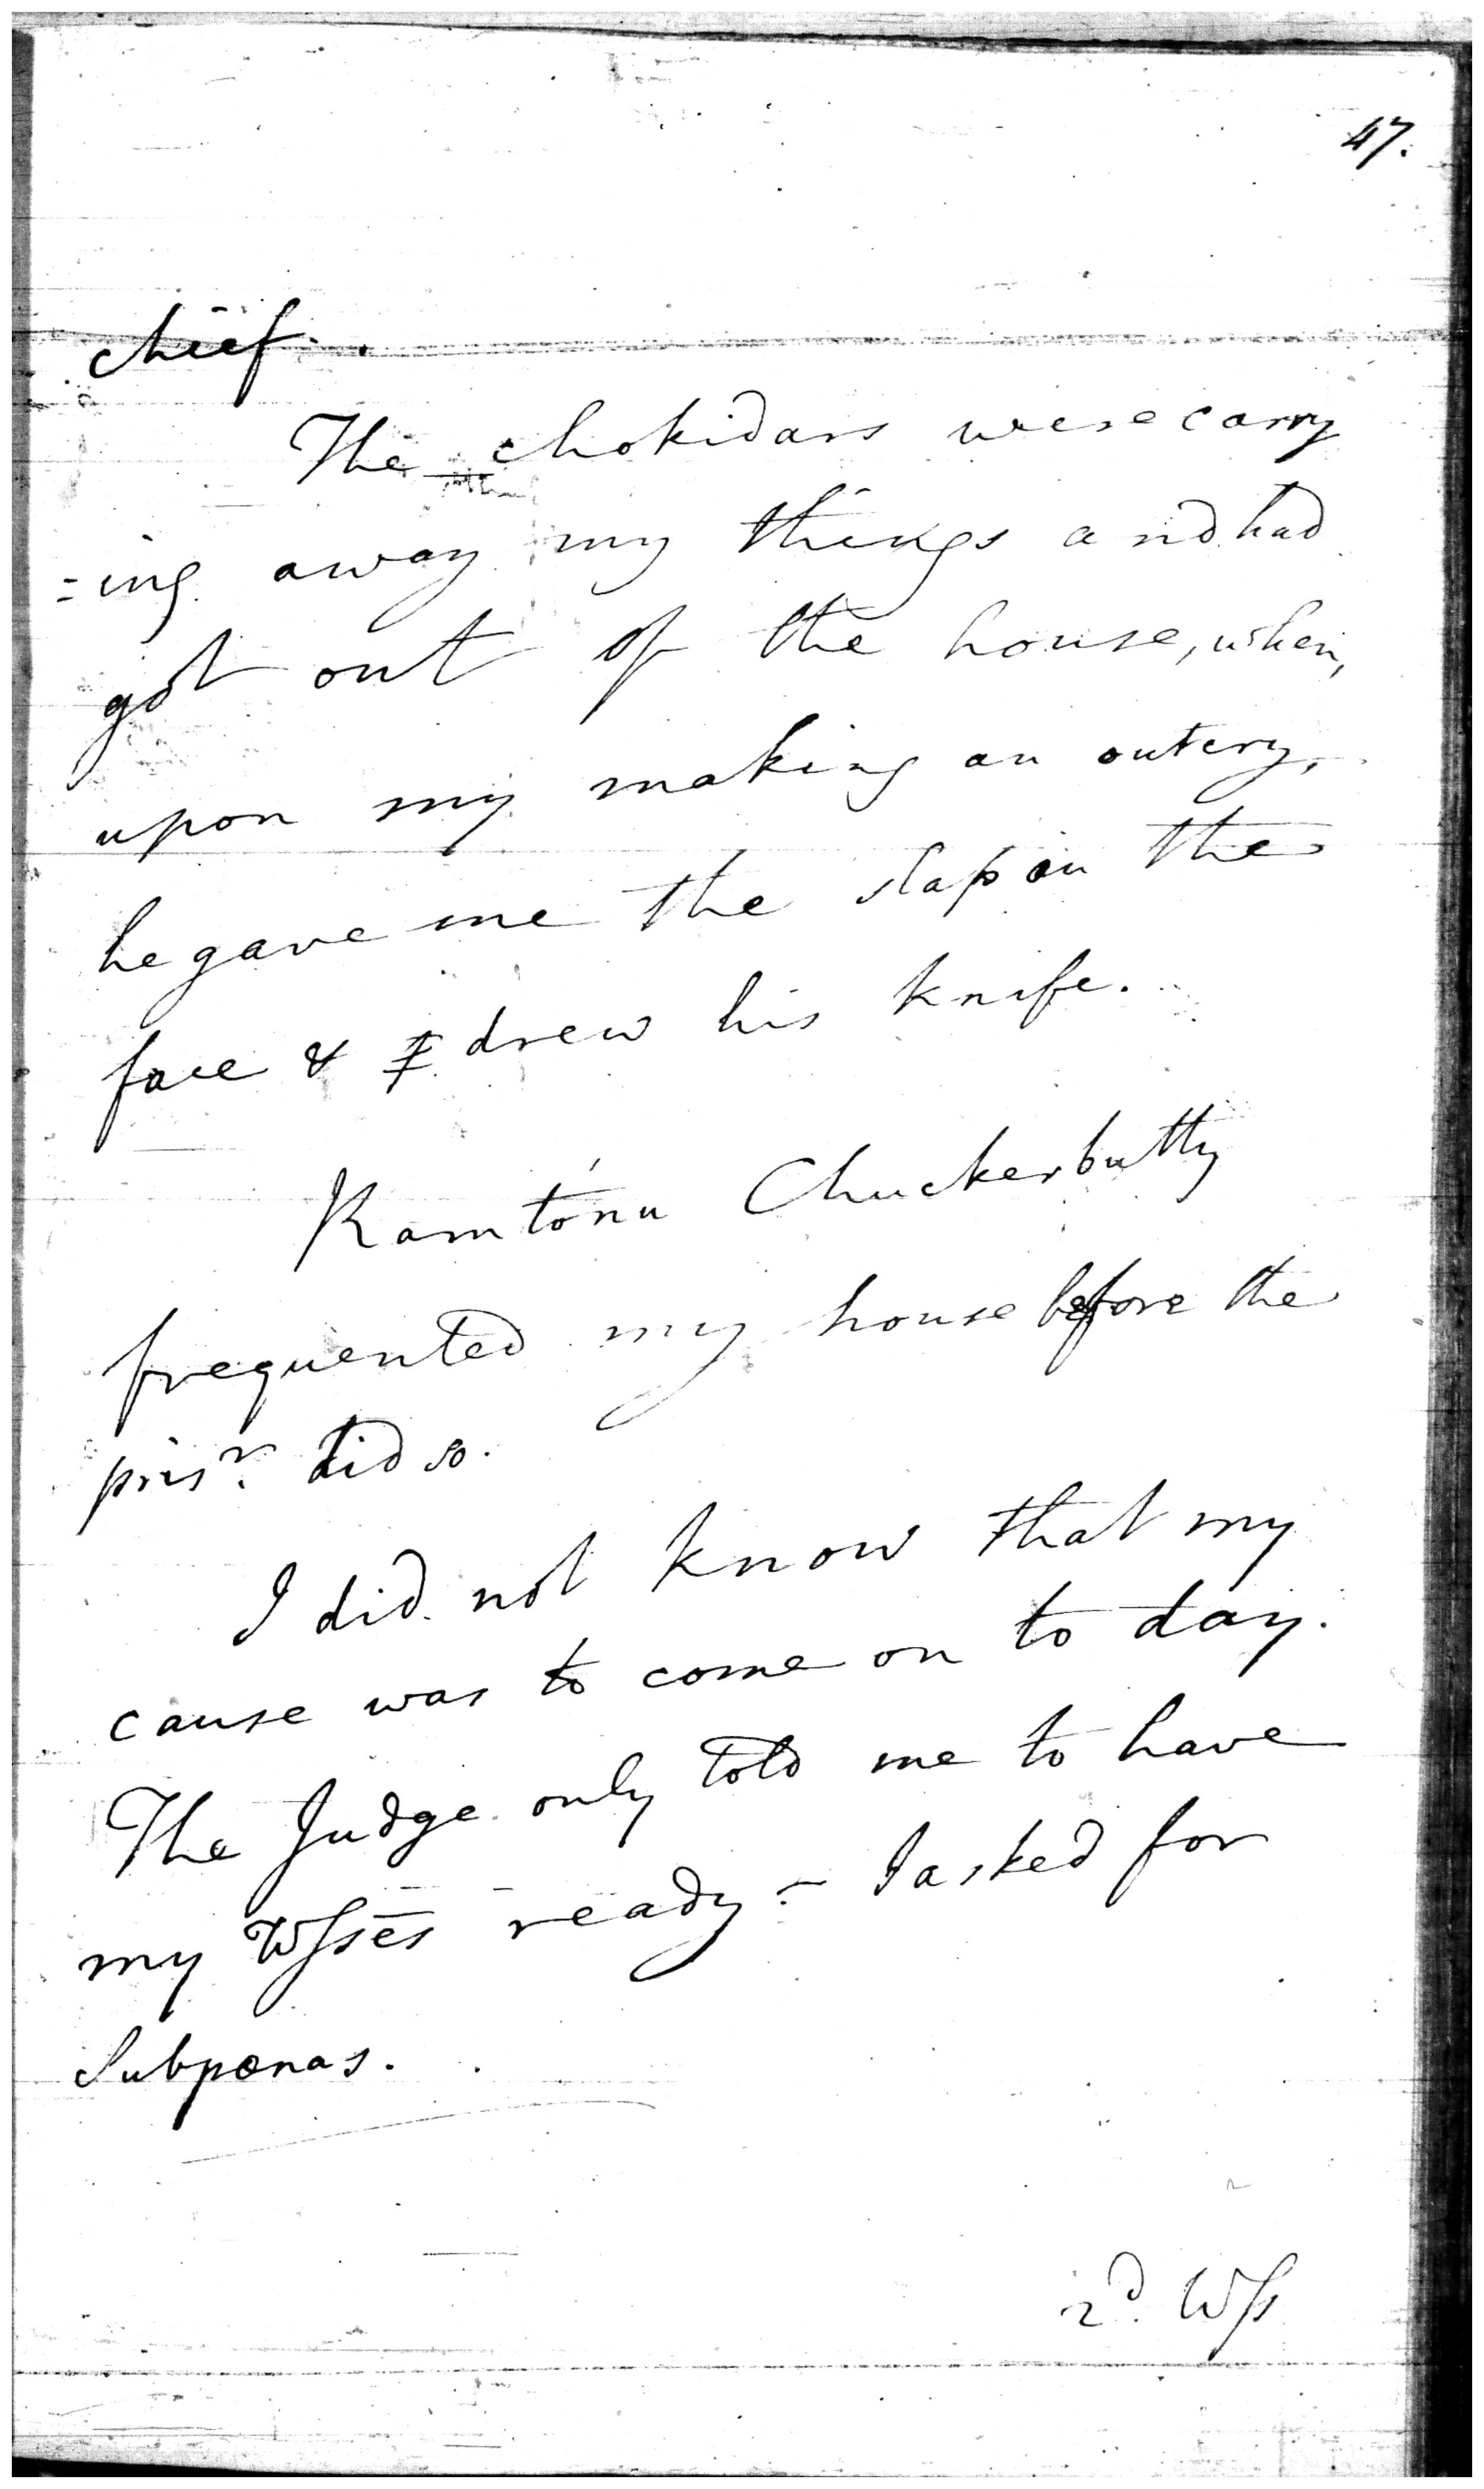 47.
chief.
The chokidars were carry
=ing away my things and had
got out of the house, when,
upon my making an outcry,
he gave me the slap on the
face & I drew his knife.
Ramtónu Chuckerbutty
frequented my house before the
prisr. did so.
I did not know that my
cause was to come on to day.
The Judge only told me to have
my Wsses ready - I asked for
Subpœnas.
2d. Wss